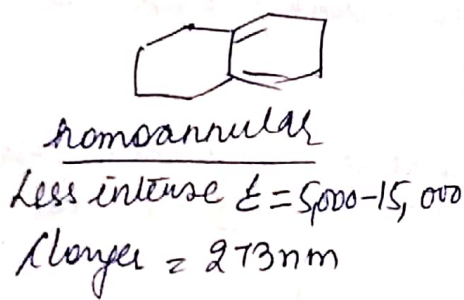 homoannular
Less intense ε = 5,000-15,000
longer = 273nm